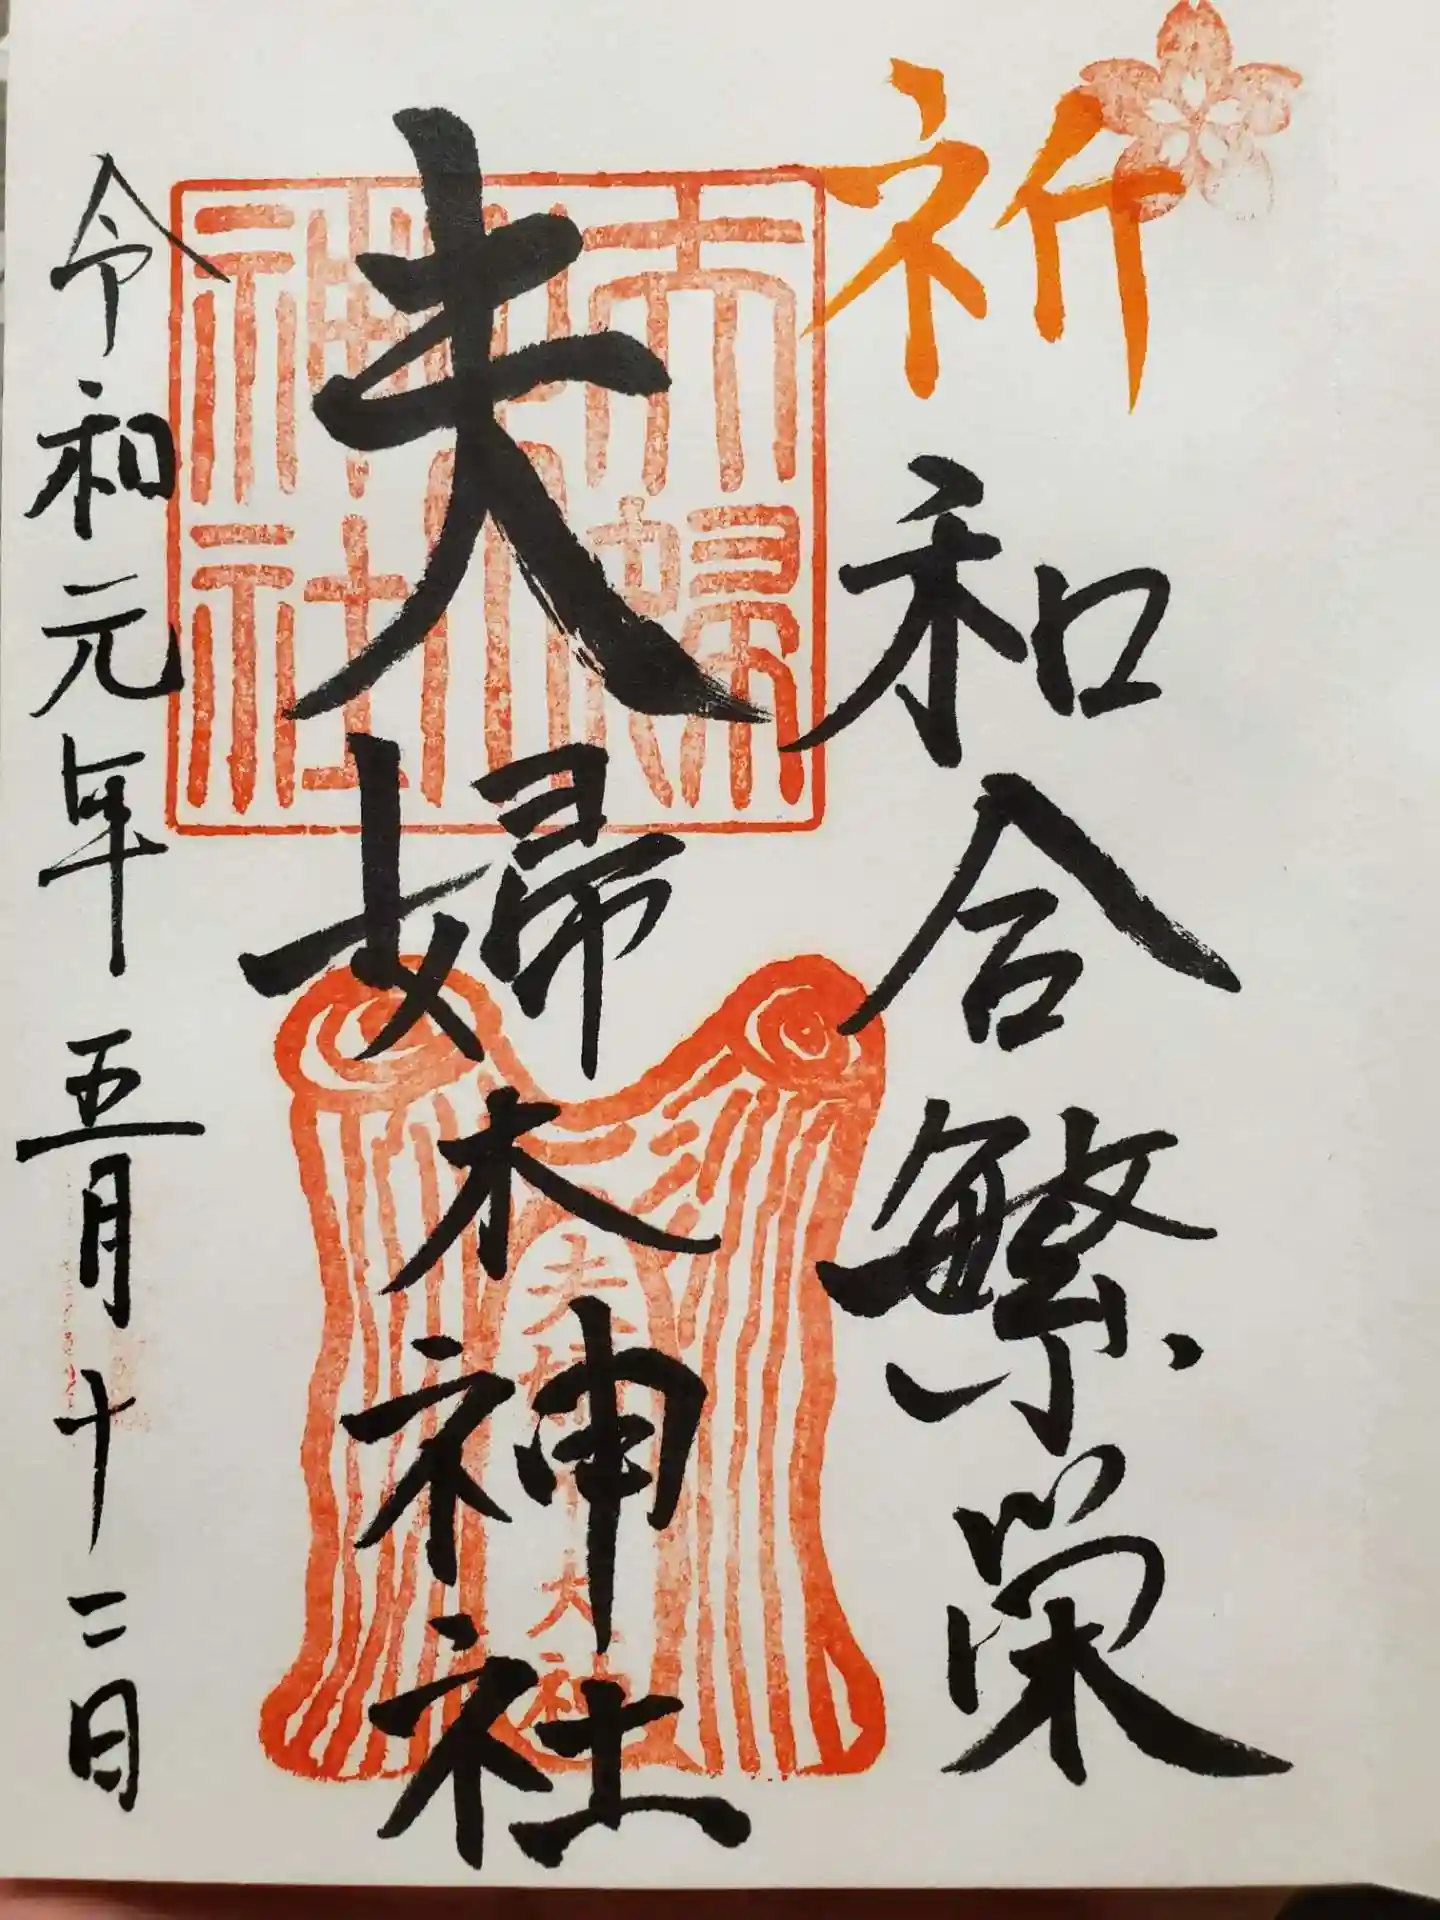 祈
和合繁栄
夫婦木神社
令和元年五月十二日
夫婦木神社
夫婦木大神